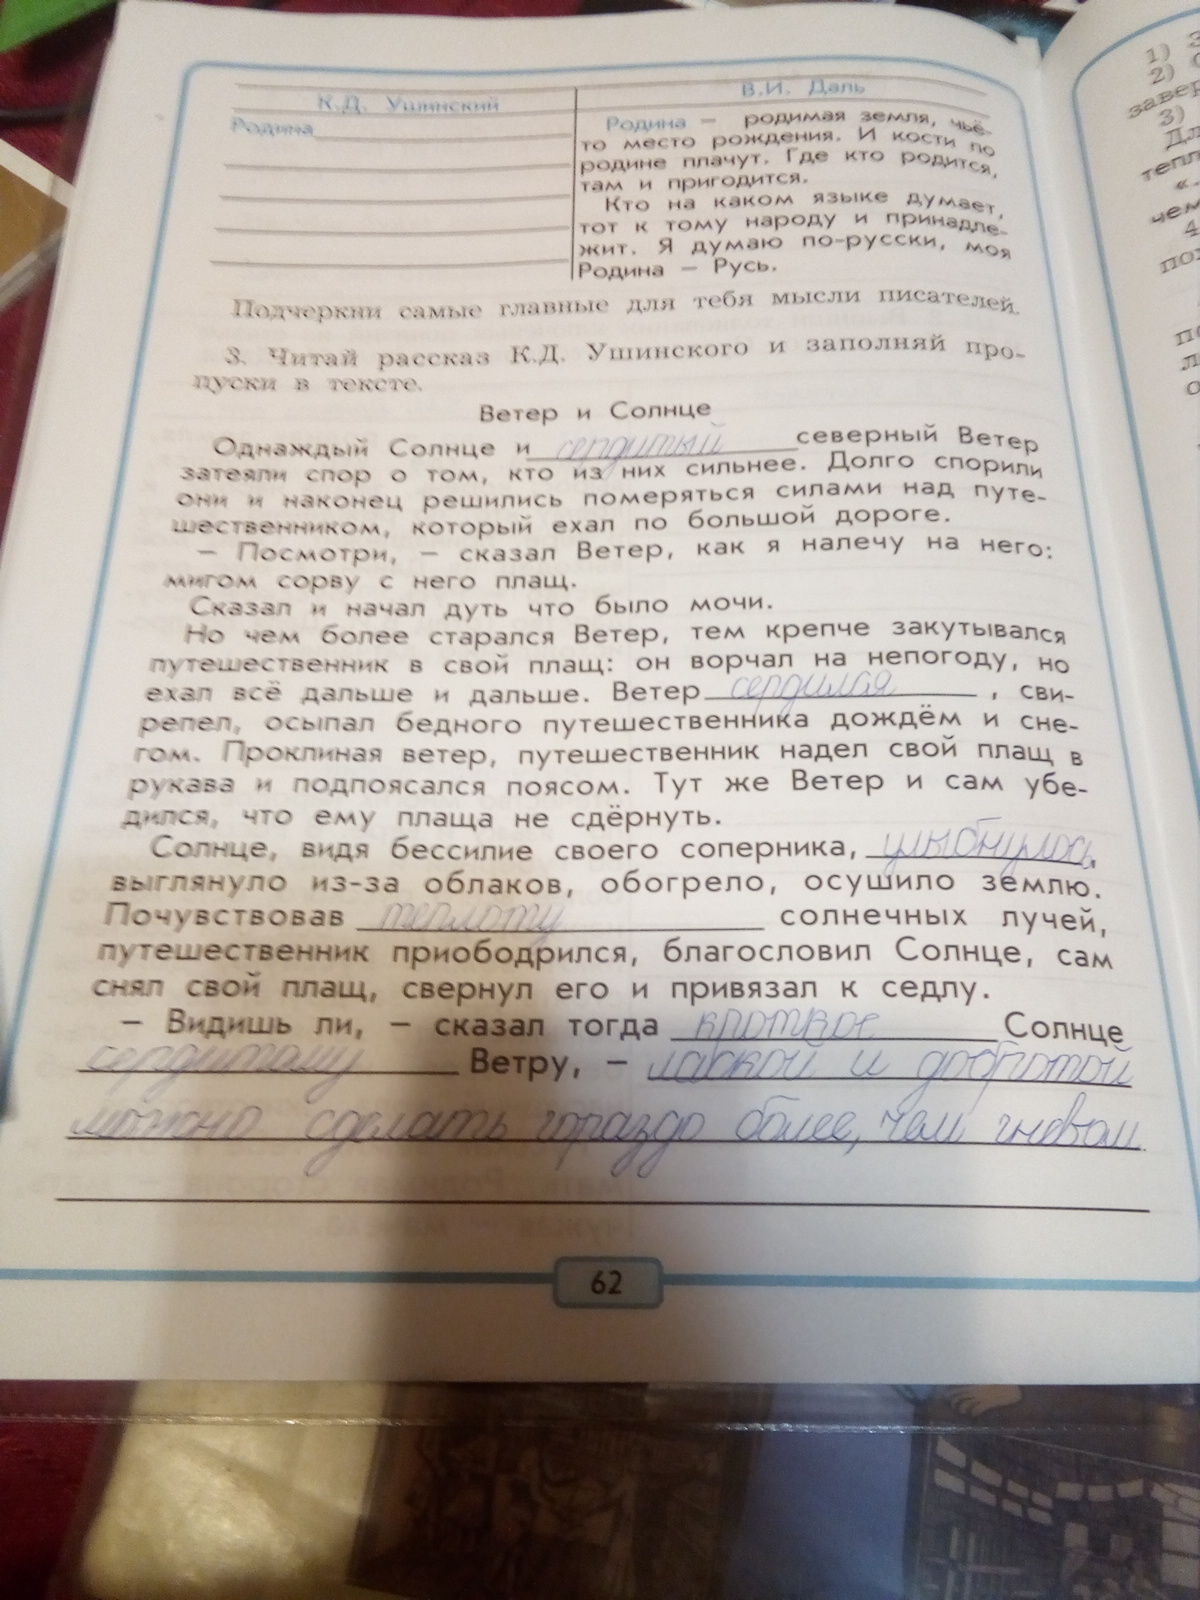 К.Д. Ушинский
Родина
В.И. Даль
Родина – родимая земля, чьё-
то место рождения. И кости по
родине плачут. Где кто родится,
там и пригодится.
Кто на каком языке думает,
тот к тому народу и принадле-
жит. Я думаю по-русски, моя
Родина – Русь.
Подчеркни самые главные для тебя мысли писателей.
3. Читай рассказ К.Д. Ушинского и заполняй про-
пуски в тексте.
Ветер и Солнце
Однаждый Солнце и сердитый северный Ветер
затеяли спор о том, кто из них сильнее. Долго спорили
они и наконец решились померяться силами над путе-
шественником, который ехал по большой дороге.
– Посмотри, – сказал Ветер, как я налечу на него:
мигом сорву с него плащ.
Сказал и начал дуть что было мочи.
Но чем более старался Ветер, тем крепче закутывался
путешественник в свой плащ: он ворчал на непогоду, но
ехал всё дальше и дальше. Ветер сердился , сви-
репел, осыпал бедного путешественника дождём и сне-
гом. Проклиная ветер, путешественник надел свой плащ в
рукава и подпоясался поясом. Тут же Ветер и сам убе-
дился, что ему плаща не сдёрнуть.
Солнце, видя бессилие своего соперника, улыбнулось,
выглянуло из-за облаков, обогрело, осушило землю.
Почувствовав теплоту солнечных лучей,
путешественник приободрился, благословил Солнце, сам
снял свой плащ, свернул его и привязал к седлу.
– Видишь ли, – сказал тогда кроткое Солнце
сердитому Ветру, – лаской и добротой
можно сделать гораздо более, чем гневом.
62
1)
2)
завер
3)
тепл
чем
4